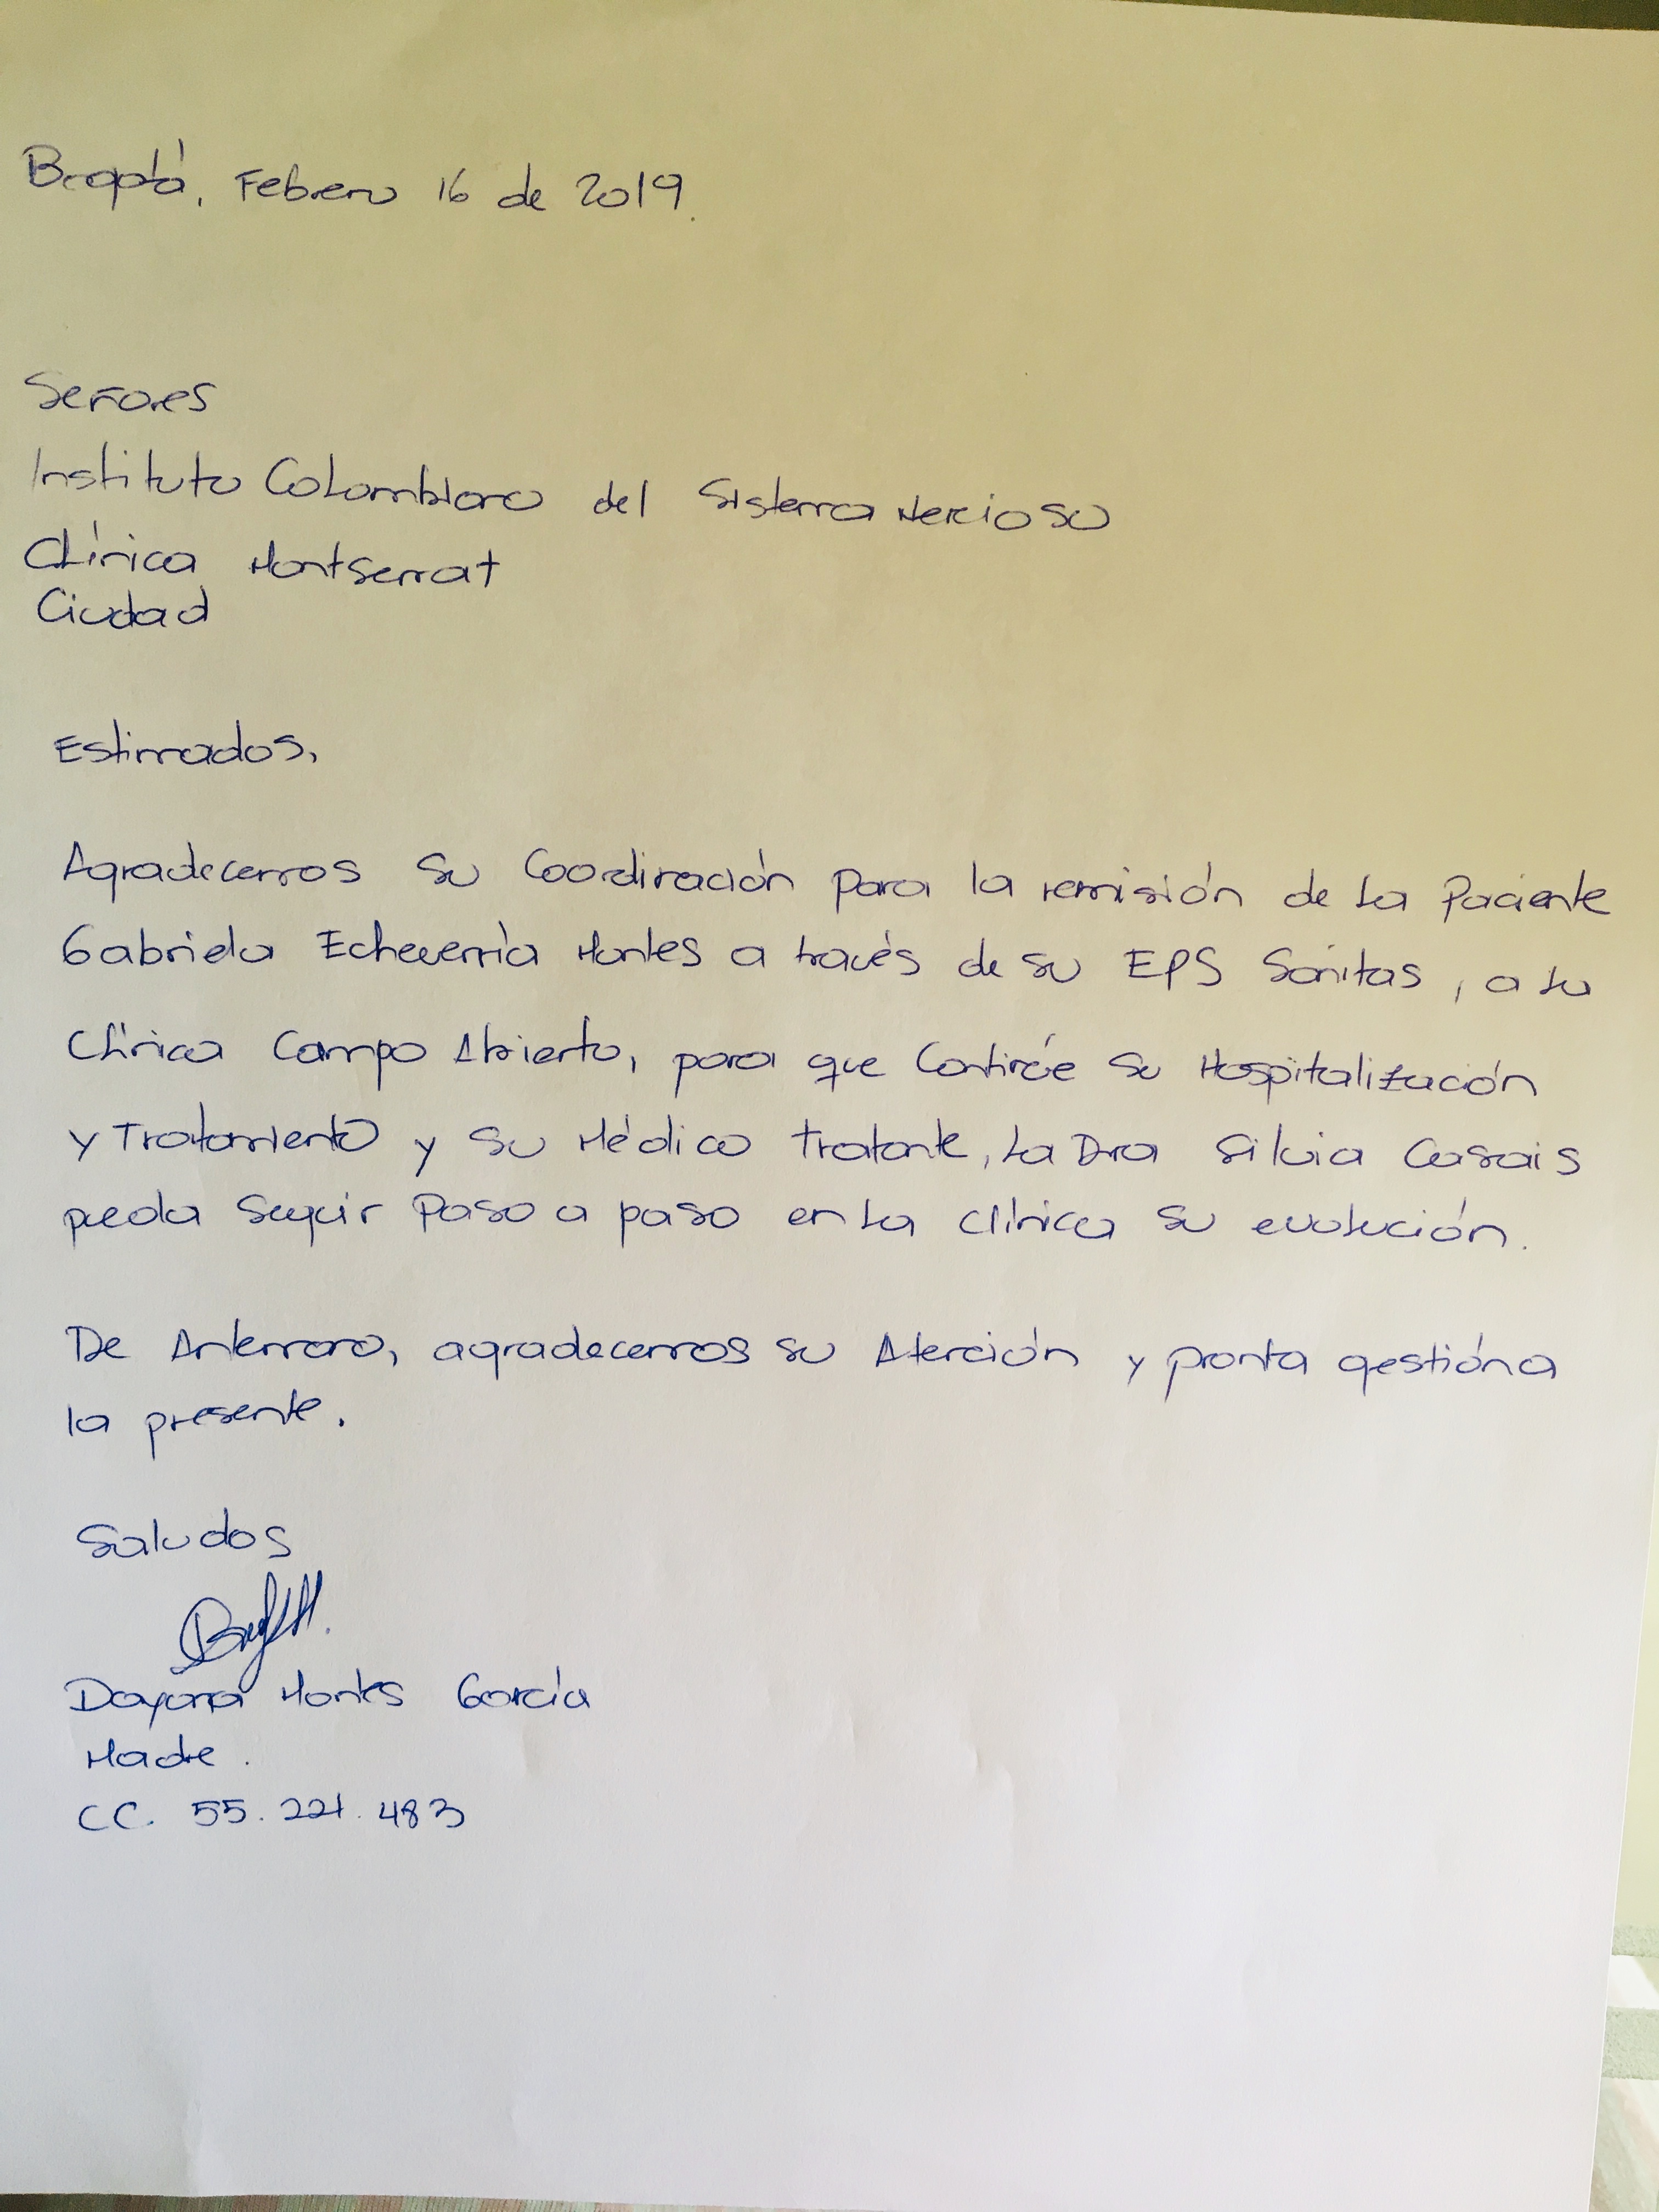 Bogotá, Febrero 16 de 2019.
Señores
Instituto Colombiano del Sistema Nervioso
Clínica Montserrat
Ciudad
Estimados,
Agradecemos su Coordinación para la remisión de la Paciente
Gabriela Echeverría Montes a través de su EPS Sanitas, a la
Clínica Campo Abierto, para que Continúe su Hospitalización
y Tratamiento y su Médico Tratante, la Dra Silvia Casais
pueda Seguir Paso a paso en la clínica su evolución.
De Antemano, agradecemos su Atención y pronta gestión a
la presente.
Saludos
Dayana Montes García
Madre.
CC. 55.221.483